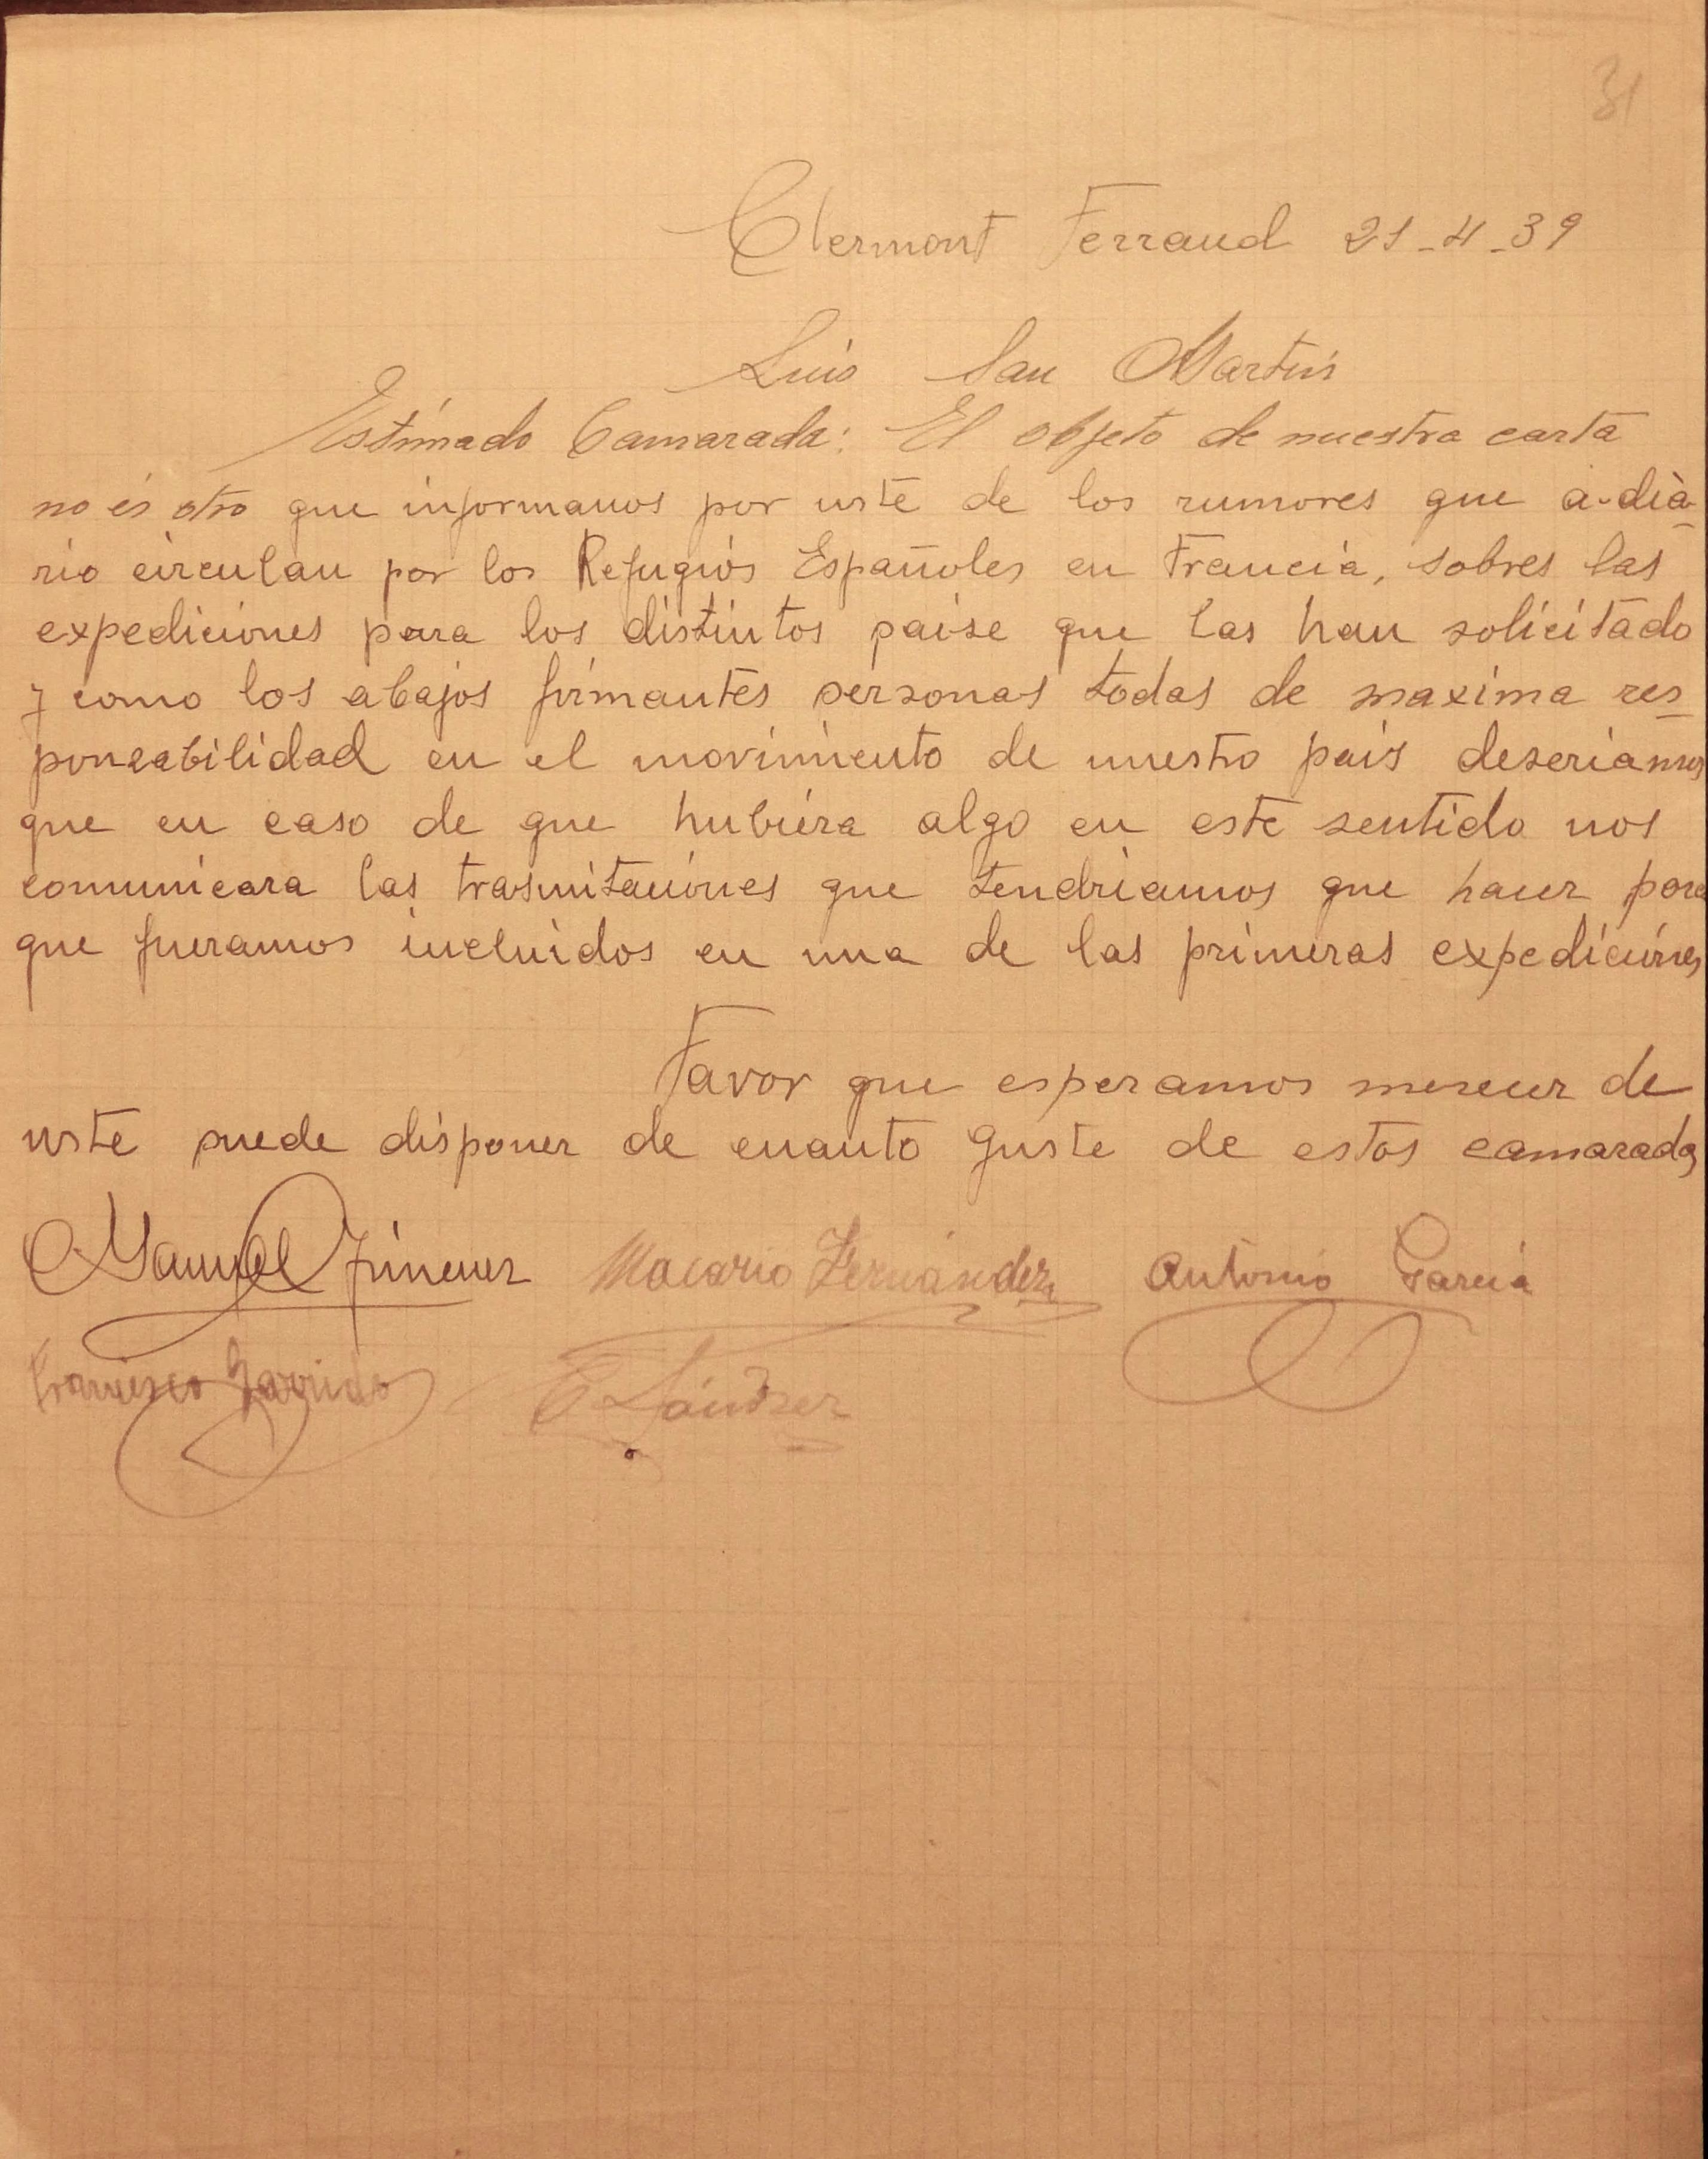 31
Clermont Ferraud 21-4-39
Luis San Martin
Estimado Camarada: El objeto de nuestra carta
no es otro que informanos por uste de los rumores que a-dia-
rio circulan por los Refugios Españoles en Francia, sobres las
expediciones para los distintos paise que las han solicitado
y como los abajos firmantes personas todas de maxima res-
poneabilidad en el movimiento de nuestro pais deseriamos
que en caso de que hubiera algo en este sentido nos
comunicara las trasmitaciones que tendriamos que hacer para
que fueramos incluidos en una de las primeras expediciones
Favor que esperamos merecer de
uste puede disponer de cuanto guste de estos camaradas
Manuel Jimenez Macario Fernández Antonio Garcia
Francisco Garrido E Sánchez